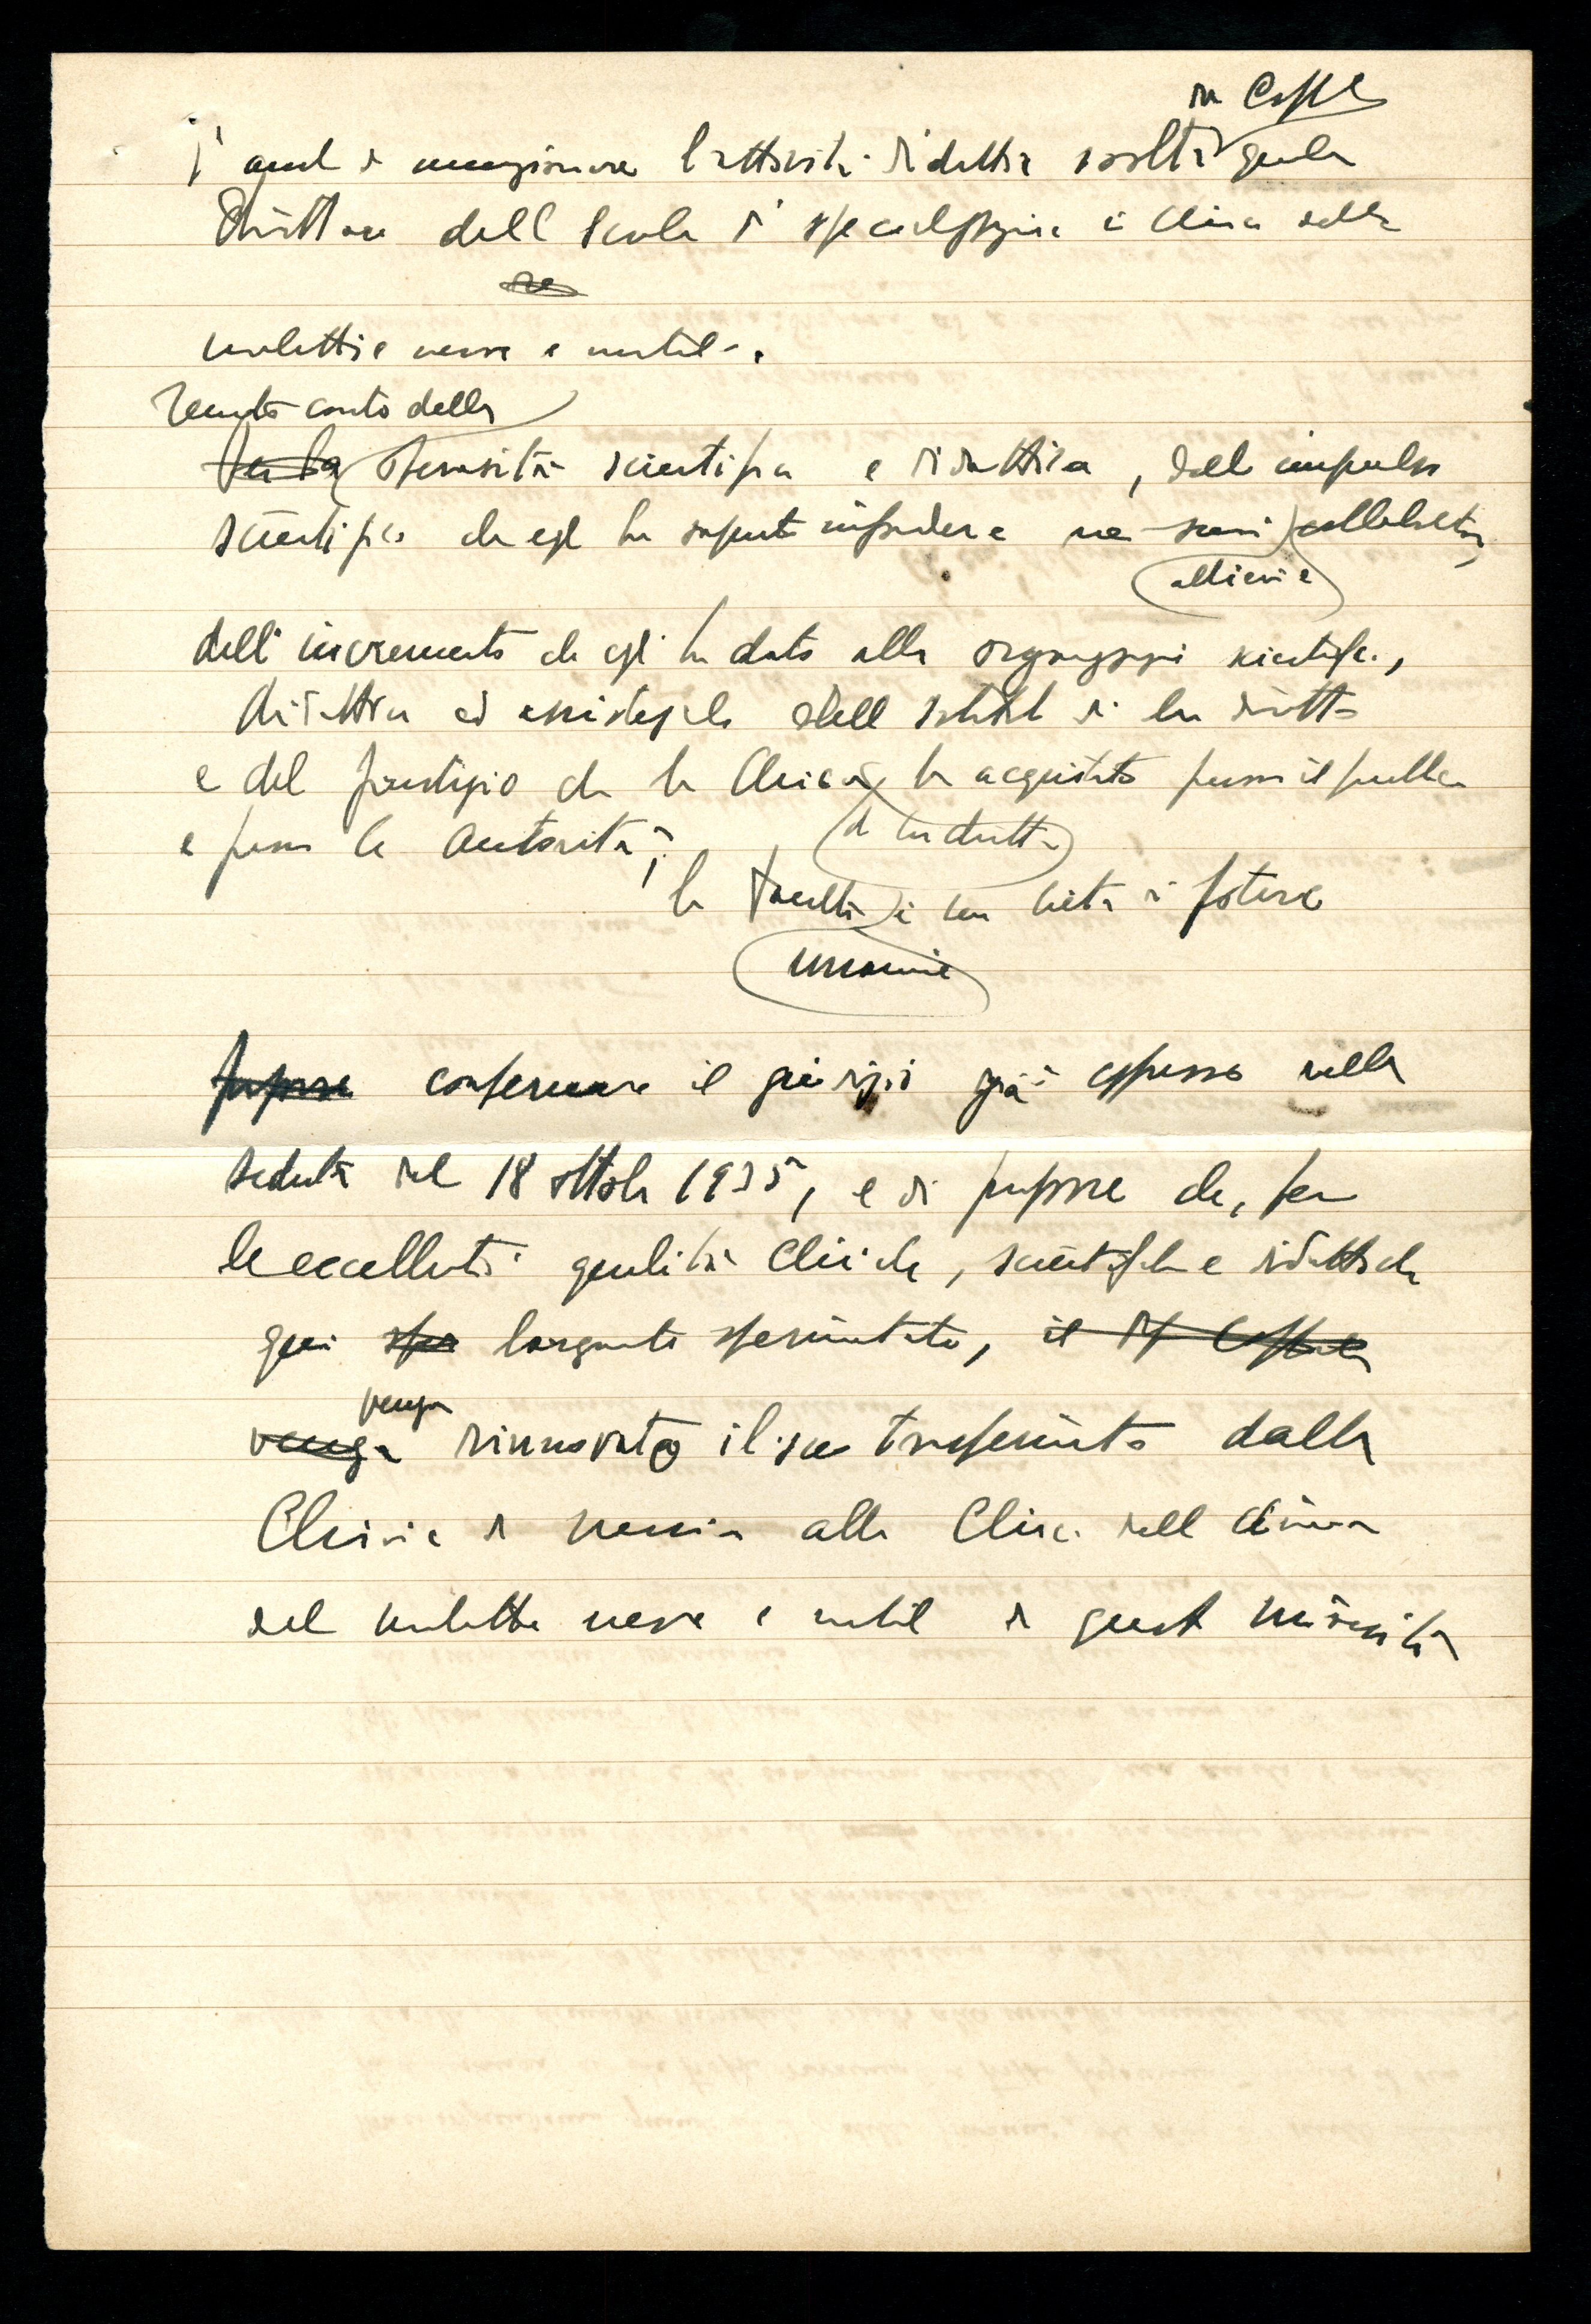 da Coppola
è anche da menzionare l'attività didattica svolta quale
Direttore della Scuola di specializzazione in Clinica delle
malattie nervose e mentali.
Tenuto conto della
Per la operosità scientifica e didattica, dell'impulso
scientifico che egli ha saputo infondere nei suoi collaboratori,
allievi e
dell'incremento che egli ha dato alla organizzazione scientifica,
didattica ed assistenziale dell'Istituto da lui diretto
e del prestigio che la Clinica ha acquistato presso il pubblico
e presso le Autorità,
da lui diretta
la Facoltà è ben lieta di potere
unanime
propone confermare il giudizio già espresso nella
seduta del 18 ottobre 1935, e di proporre che, per
le eccellenti qualità cliniche, scientifiche e didattiche
qui largamente sperimentate, il Prof Coppola
venga
venga rinnovato il suo trasferimento dalla
Clinica di Messina alla Clinica
delle malattie nervose e mentali di questa Università